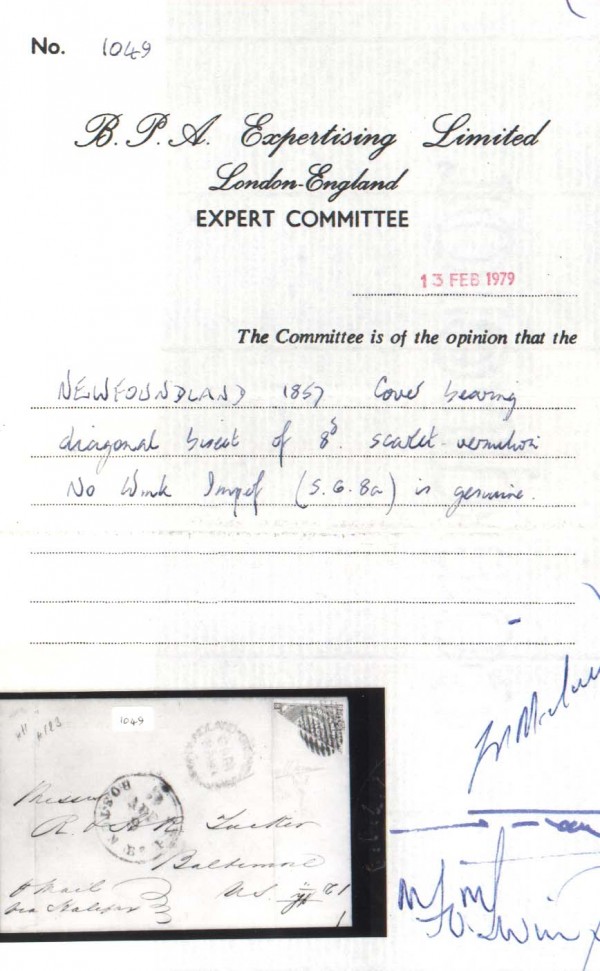 No. 1049
B. P. A. Expertising Limited
London-England
EXPERT COMMITTEE
13 FEB 1979
The Committee is of the opinion that the
NEWFOUNDLAND 1857 Cover bearing
diagonal bisect of 8d. scarlet-vermilion
No Wmk Imperf (S.G. 8a) is genuine.
1049
Messrs
R. & Tucker
Baltimore
U.S.
via Halifax
BOSTON